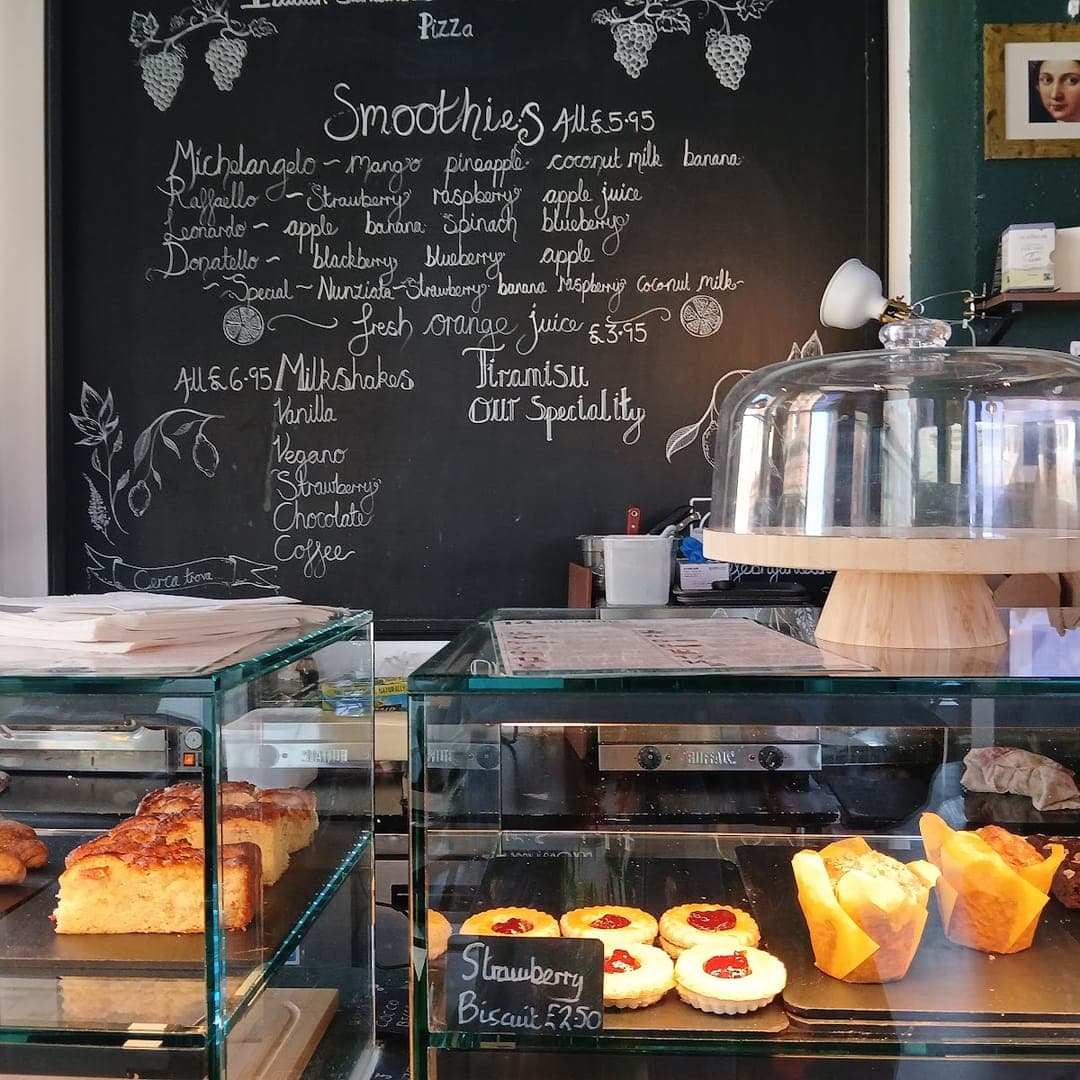 Pizza
Smoothies All £5.95
Michelangelo ~ mango pineapple coconut milk banana
Raffaello ~ Strawberry raspberry apple juice
Leonardo ~ apple banana spinach blueberry
Donatello ~ blackberry blueberry apple
~ Special ~ Nunziata ~ Strawberry banana raspberry coconut milk ~
fresh orange juice £3.95
All £6.95 Milkshakes
Vanilla
Vegano
Strawberry
Chocolate
Coffee
Tiramisu
our Speciality
Cerca trova
BUFFALO
Strawberry
Biscuit £2.50